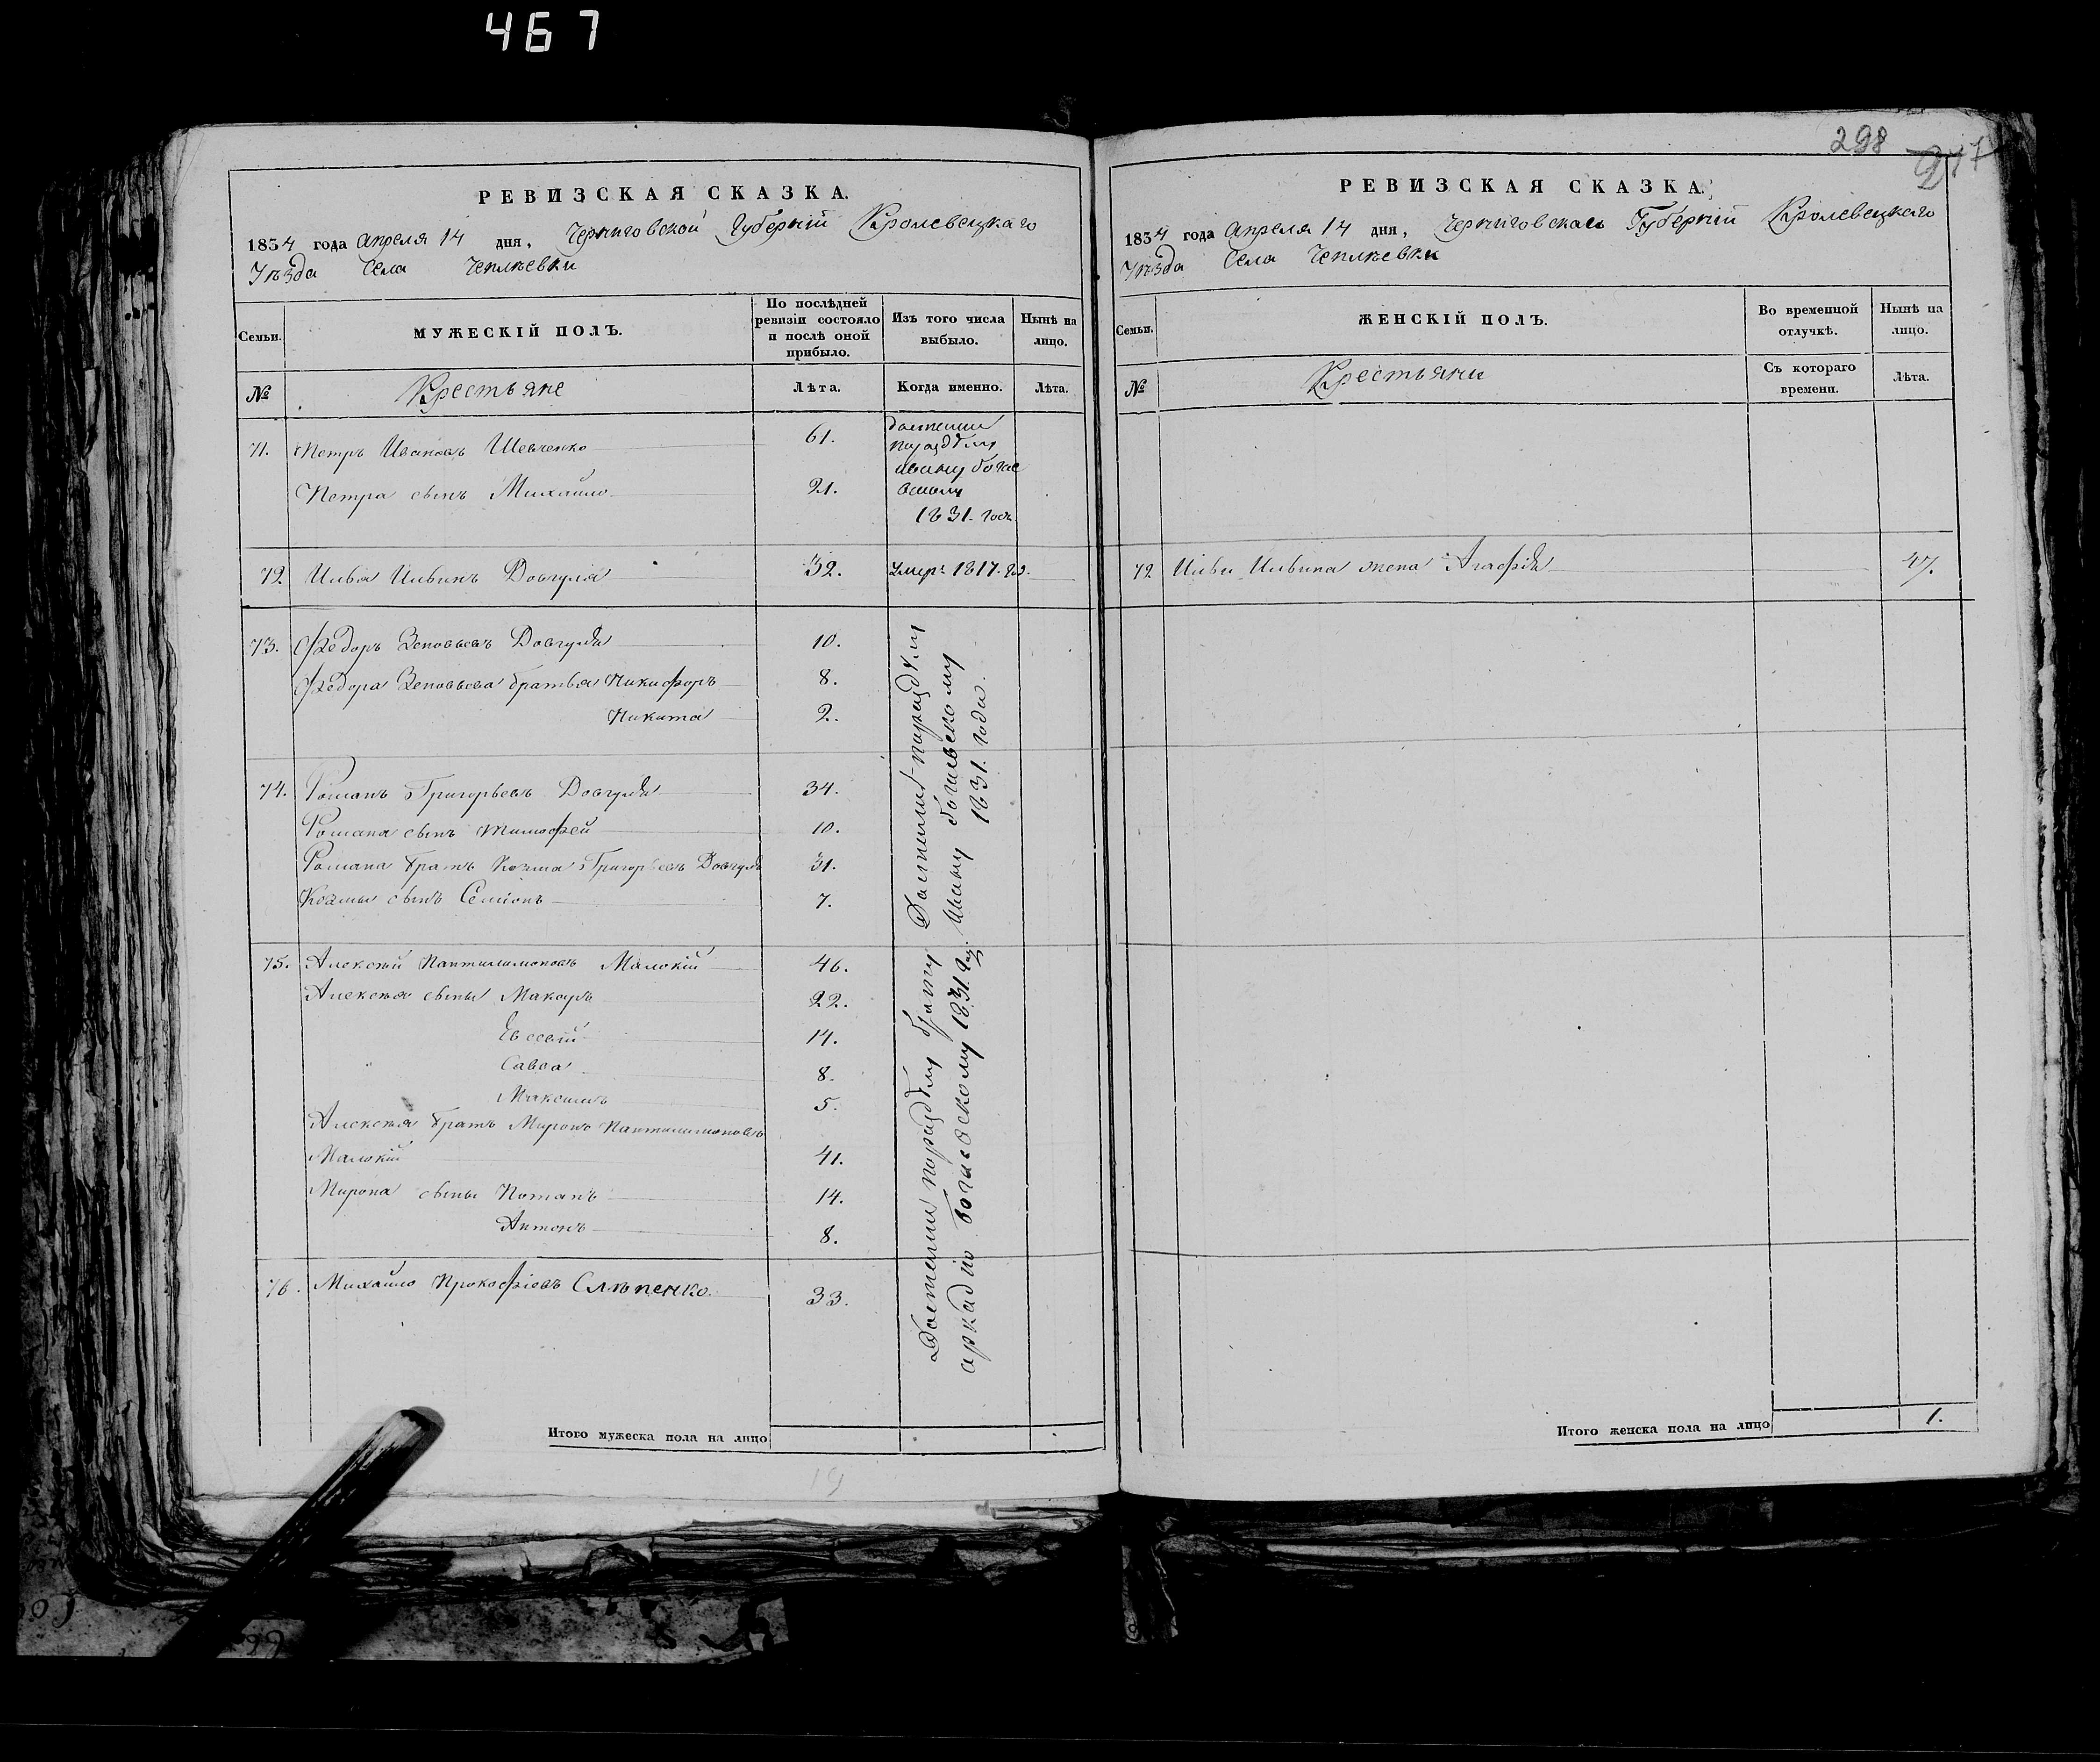 467
298
РЕВИЗСКАЯ СКАЗКА.
1834 года Апреля 14 дня, Черниговской Губернiй Кролевецкаго
Уѣзда Села Чеплеевки
Семьи.
МУЖЕСКIЙ ПОЛЪ.
По послѣдней ревизiи состояло и послѣ оной прибыло.
Изъ того числа выбыло.
Нынѣ на лицо.
№
Крестьяне
Лѣта.
Когда именно.
Лѣта.
71. Петръ Ивановъ Шевченко 61.
Петра сынъ Михайло 21.
1831. года
72. Илья Ильинъ Довгуля 32. умеръ 1817. го.
73. Федоръ Зеновьевъ Довгуля 10.
Федора Зеновьева братья Никифоръ 8.
Никита 2.
74. Романъ Григорьевъ Довгуля 34.
Романа сынъ Тимофей 10.
Романа братъ Козма Григорьевъ Довгуля 31.
Козмы сынъ Семiонъ 7.
Достались по раздѣлу
Ивану Богаевскому
1831. года.
75. Алексѣй Пантилимоновъ Малокiй 46.
Алексѣя сыны Макаръ 22.
Евсевiй 14.
Савва 8.
Максимъ 5.
Алексѣя братъ Миронъ Пантилимоновъ
Малокiй 41.
Мирона сыны Потапъ 14.
Антонъ 8.
76. Михайло Прокофiевъ Слѣпенко. 33.
Достались по раздѣлу брату
аркадiю Богаевскому 1831 году.
Итого мужеска пола на лицо
19
РЕВИЗСКАЯ СКАЗКА.
1834 года Апреля 14 дня, Черниговской Губернiй Кролевецкаго
Уѣзда Села Чеплеевки
Семьи.
ЖЕНСКIЙ ПОЛЪ.
Во временной отлучкѣ.
Нынѣ на лицо.
№
Крестьяни
Съ котораго времени.
Лѣта.
72 Ильи Ильина жена Агафiя 47.
Итого женска пола на лицо 1.